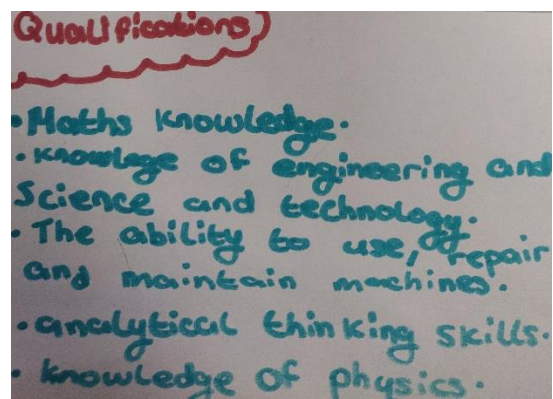 Qualifications
• Maths knowledge.
• knowlege of engineering and
Science and technology.
• The ability to use, repair
and maintain machines.
• analytical thinking skills.
• knowledge of physics.